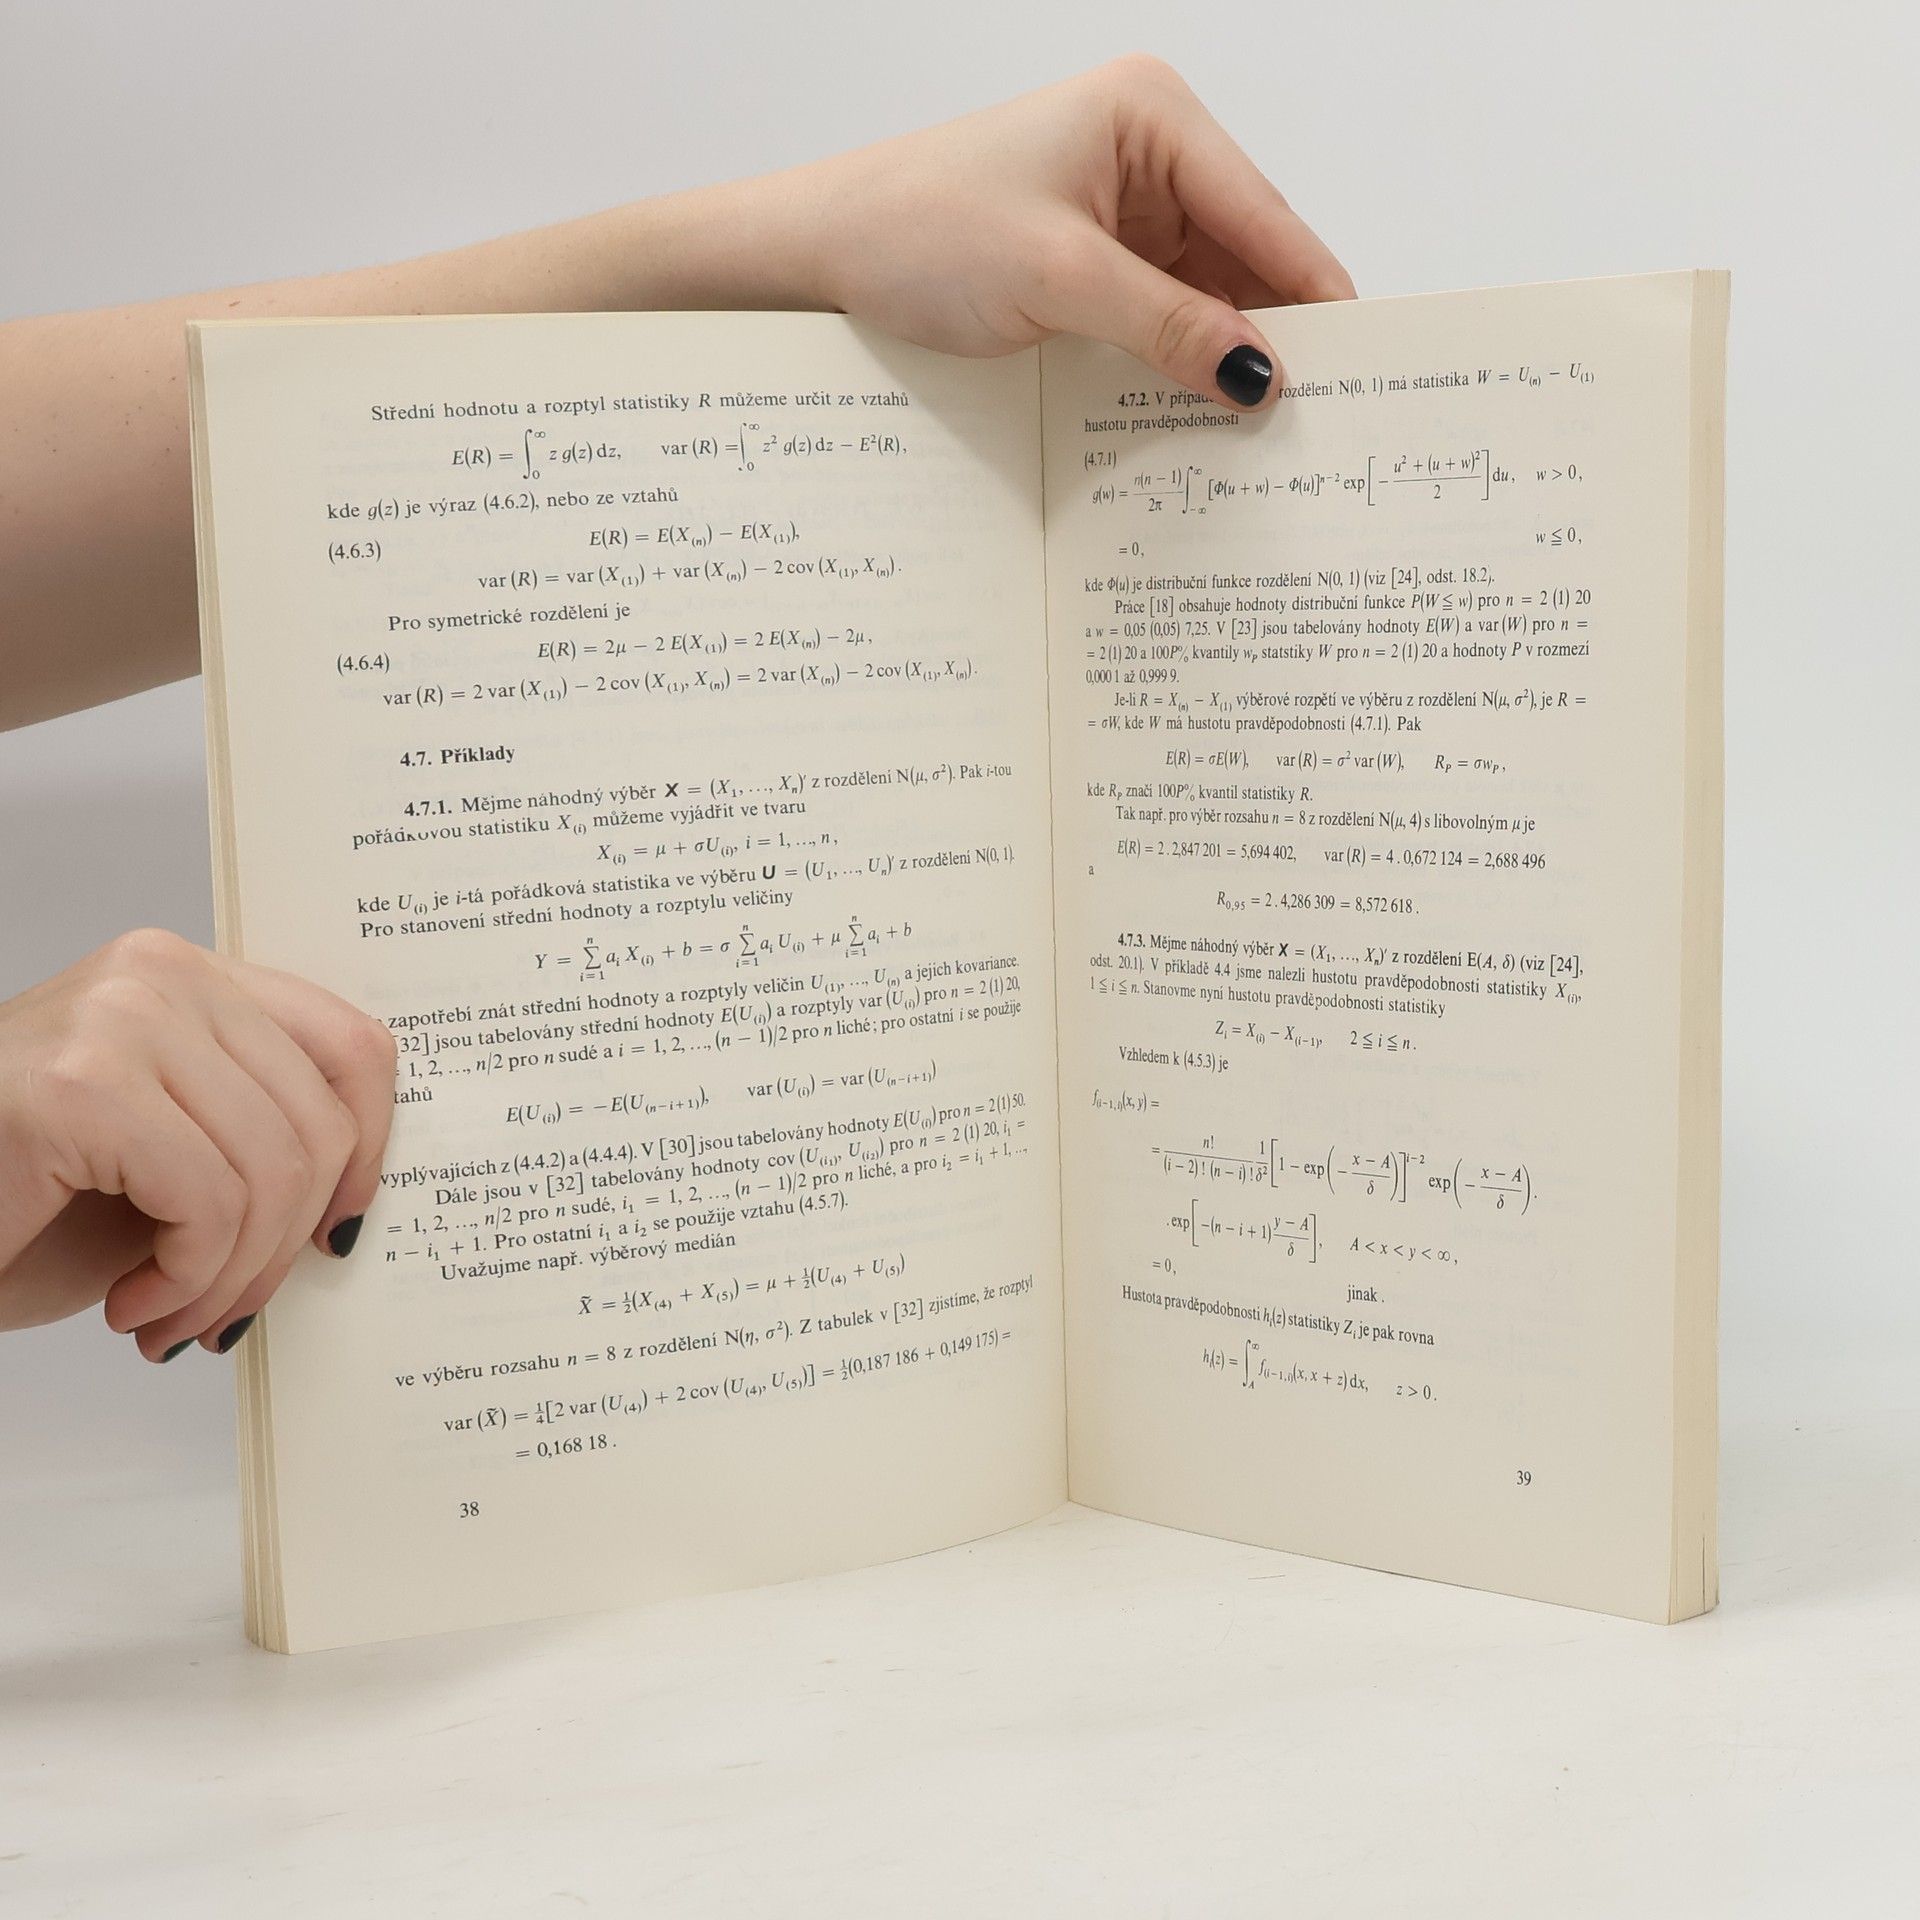 Střední hodnotu a rozptyl statistiky R můžeme určit ze vztahů
E(R) = ∫₀^∞ z g(z) dz, var (R) = ∫₀^∞ z² g(z) dz − E²(R),
kde g(z) je výraz (4.6.2), nebo ze vztahů
(4.6.3) E(R) = E(X₍ₙ₎) − E(X₍₁₎),
var (R) = var (X₍₁₎) + var (X₍ₙ₎) − 2 cov (X₍₁₎, X₍ₙ₎).
Pro symetrické rozdělení je
(4.6.4) E(R) = 2μ − 2 E(X₍₁₎) = 2 E(X₍ₙ₎) − 2μ,
var (R) = 2 var (X₍₁₎) − 2 cov (X₍₁₎, X₍ₙ₎) = 2 var (X₍ₙ₎) − 2 cov (X₍₁₎, X₍ₙ₎).
4.7. Příklady
4.7.1. Mějme náhodný výběr X = (X₁, ..., Xₙ)′ z rozdělení N(μ, σ²). Pak i-tou
pořádkovou statistiku X₍ᵢ₎ můžeme vyjádřit ve tvaru
X₍ᵢ₎ = μ + σU₍ᵢ₎, i = 1, ..., n,
kde U₍ᵢ₎ je i-tá pořádková statistika ve výběru U = (U₁, ..., Uₙ)′ z rozdělení N(0, 1).
Pro stanovení střední hodnoty a rozptylu veličiny
Y = ∑ᵢ₌₁ⁿ aᵢ X₍ᵢ₎ + b = σ ∑ᵢ₌₁ⁿ aᵢ U₍ᵢ₎ + μ ∑ᵢ₌₁ⁿ aᵢ + b
zapotřebí znát střední hodnoty a rozptyly veličin U₍₁₎, ..., U₍ₙ₎ a jejich kovariance.
[32] jsou tabelovány střední hodnoty E(U₍ᵢ₎) a rozptyly var (U₍ᵢ₎) pro n = 2 (1) 20,
= 1, 2, ..., n/2 pro n sudé a i = 1, 2, ..., (n − 1)/2 pro n liché; pro ostatní i se použije
tahů
E(U₍ᵢ₎) = −E(U₍ₙ₋ᵢ₊₁₎), var (U₍ᵢ₎) = var (U₍ₙ₋ᵢ₊₁₎)
vyplývajících z (4.4.2) a (4.4.4). V [30] jsou tabelovány hodnoty E(U₍ᵢ₎) pro n = 2 (1) 50.
Dále jsou v [32] tabelovány hodnoty cov (U₍ᵢ₁₎, U₍ᵢ₂₎) pro n = 2 (1) 20, i₁ =
= 1, 2, ..., n/2 pro n sudé, i₁ = 1, 2, ..., (n − 1)/2 pro n liché, a pro i₂ = i₁ + 1, ...,
n − i₁ + 1. Pro ostatní i₁ a i₂ se použije vztahu (4.5.7).
Uvažujme např. výběrový medián
X̃ = ½(X₍₄₎ + X₍₅₎) = μ + ½(U₍₄₎ + U₍₅₎)
ve výběru rozsahu n = 8 z rozdělení N(η, σ²). Z tabulek v [32] zjistíme, že rozptyl
var (X̃) = ¼[2 var (U₍₄₎) + 2 cov (U₍₄₎, U₍₅₎)] = ½(0,187 186 + 0,149 175) =
= 0,168 18 .
38
4.7.2. V případ rozdělení N(0, 1) má statistika W = U₍ₙ₎ − U₍₁₎
hustotu pravděpodobnosti
(4.7.1)
g(w) = n(n − 1)/2π ∫₋∞^∞ [Φ(u + w) − Φ(u)]ⁿ⁻² exp[− (u² + (u + w)²)/2] du, w > 0,
= 0, w ≦ 0,
kde Φ(u) je distribuční funkce rozdělení N(0, 1) (viz [24], odst. 18.2).
Práce [18] obsahuje hodnoty distribuční funkce P(W ≦ w) pro n = 2 (1) 20
a w = 0,05 (0,05) 7,25. V [23] jsou tabelovány hodnoty E(W) a var (W) pro n =
= 2 (1) 20 a 100P% kvantily w_P statstiky W pro n = 2 (1) 20 a hodnoty P v rozmezí
0,000 1 až 0,999 9.
Je-li R = X₍ₙ₎ − X₍₁₎ výběrové rozpětí ve výběru z rozdělení N(μ, σ²), je R =
= σW, kde W má hustotu pravděpodobnosti (4.7.1). Pak
E(R) = σE(W), var (R) = σ² var (W), R_P = σw_P,
kde R_P značí 100P% kvantil statistiky R.
Tak např. pro výběr rozsahu n = 8 z rozdělení N(μ, 4) s libovolným μ je
E(R) = 2 . 2,847 201 = 5,694 402, var (R) = 4 . 0,672 124 = 2,688 496
a
R₀,₉₅ = 2 . 4,286 309 = 8,572 618 .
4.7.3. Mějme náhodný výběr X = (X₁, ..., Xₙ)′ z rozdělení E(A, δ) (viz [24],
odst. 20.1). V příkladě 4.4 jsme nalezli hustotu pravděpodobnosti statistiky X₍ᵢ₎,
1 ≦ i ≦ n. Stanovme nyní hustotu pravděpodobnosti statistiky
Zᵢ = X₍ᵢ₎ − X₍ᵢ₋₁₎, 2 ≦ i ≦ n .
Vzhledem k (4.5.3) je
f₍ᵢ₋₁,ᵢ₎(x, y) =
= n!/((i − 2)! (n − i)!) 1/δ² [1 − exp(− (x − A)/δ)]ⁱ⁻² exp(− (x − A)/δ) .
. exp[−(n − i + 1) (y − A)/δ], A < x < y < ∞,
= 0, jinak .
Hustota pravděpodobnosti hᵢ(z) statistiky Zᵢ je pak rovna
hᵢ(z) = ∫_A^∞ f₍ᵢ₋₁,ᵢ₎(x, x + z) dx, z > 0 .
39